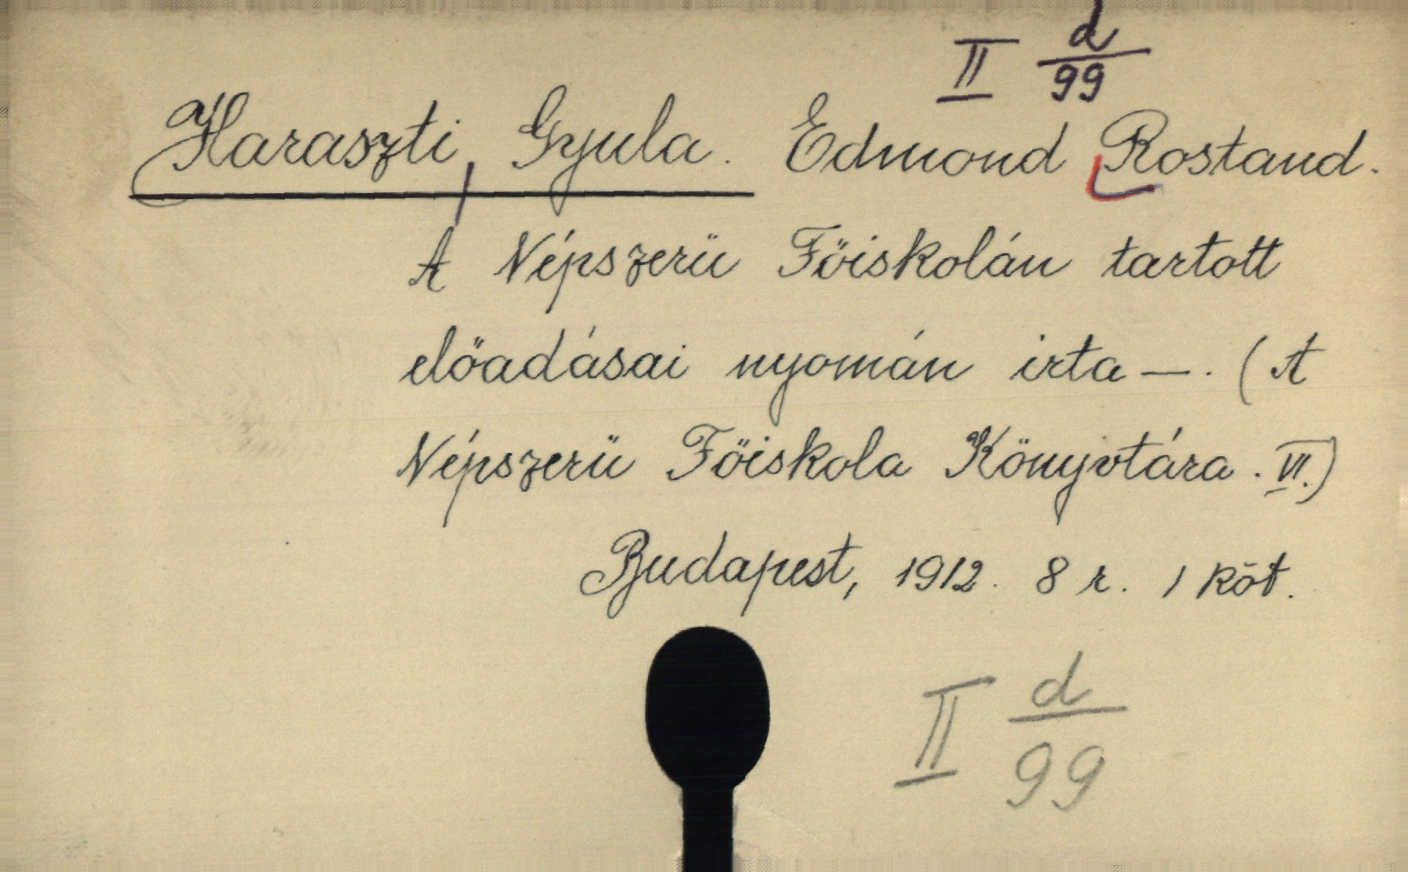 II d/99
Haraszti, Gyula. Edmond Rostand.
A Népszerü Föiskolán tartott
elöadásai nyomán irta —. (A
Népszerü Föiskola Könyvtára. VI.)
Budapest, 1912. 8 r. 1 köt.
II d/99